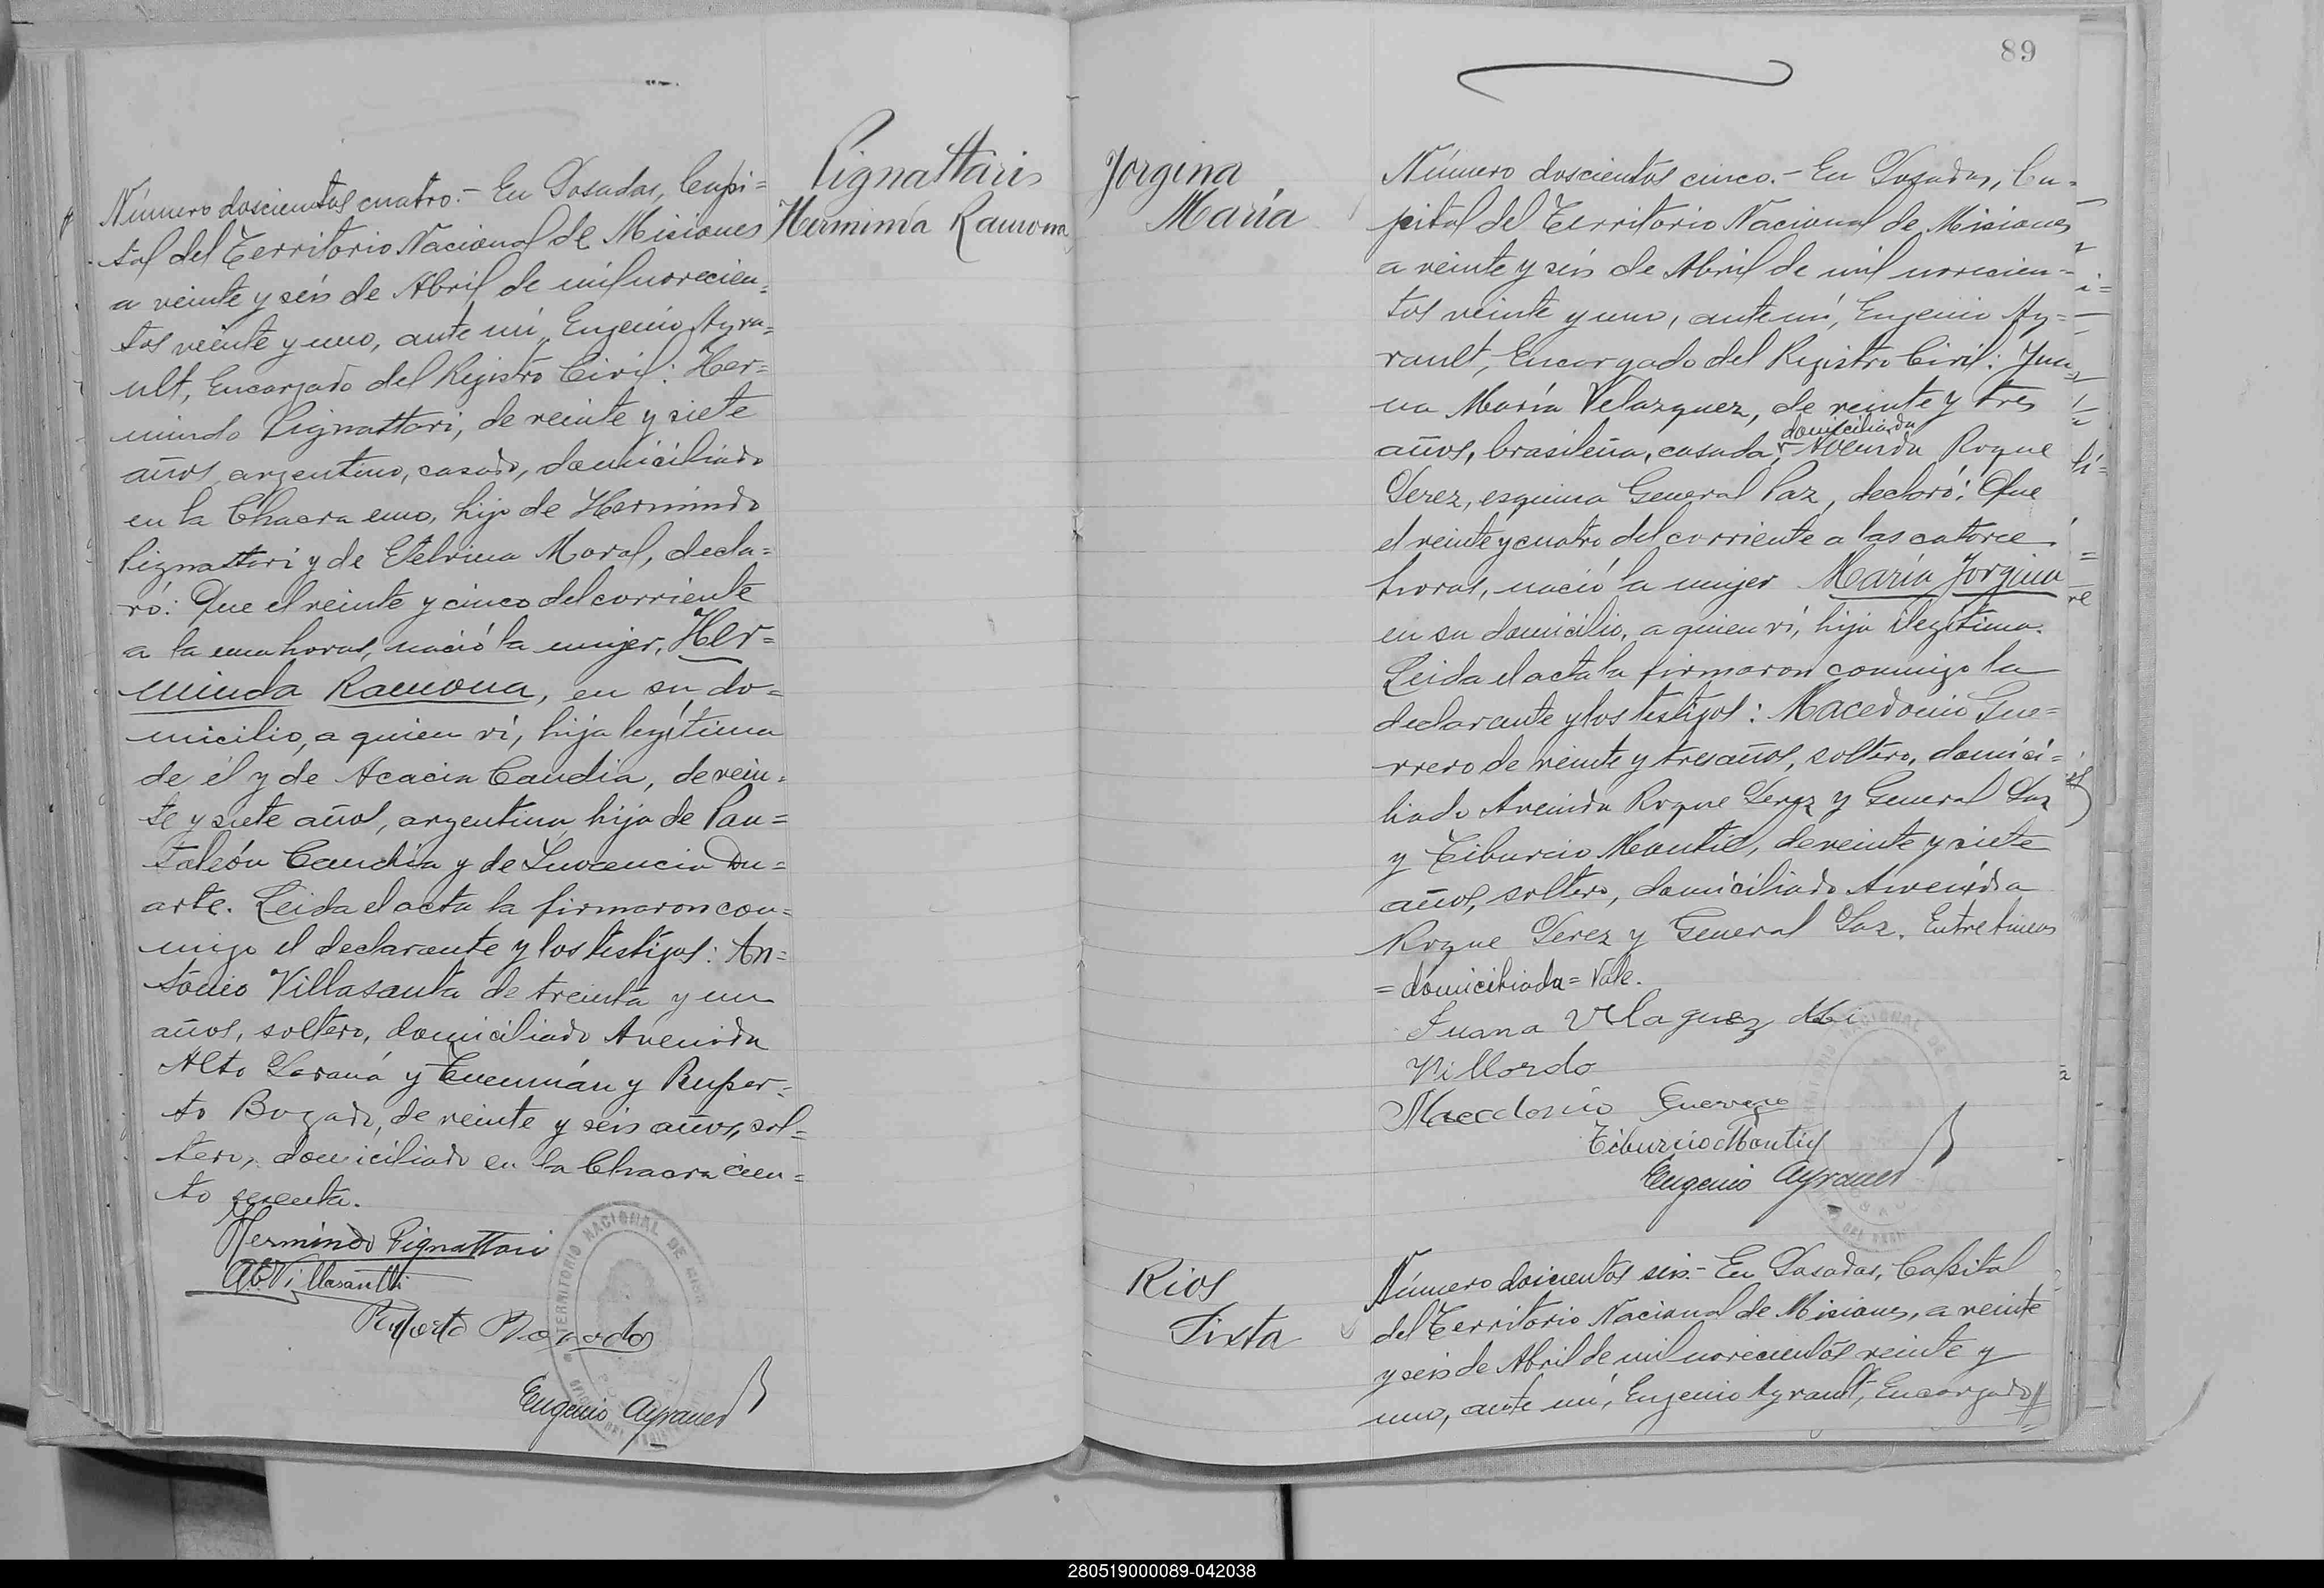 Pignattari
Herminda Ramona
Número doscientos cuatro.- En Posadas, Capi=
tal del Territorio Nacional de Misiones
a veinte y séis de Abril de mil novecien=
tos veinte y uno, ante mí, Eugenio Ayra=
ult, Encargado del Registro Civil: Her=
mindo Pignattari, de veinte y siete
años, argentino, casado, domiciliado
en la Chacra uno, hijo de Hermindo
Pignattari y de Etelvina Moral, decla=
ró: Que el veinte y cinco del corriente
a la una horas, nació la mujer, Her=
minda Ramona, en su do=
micilio, a quien ví, hija legítima
de él y de Acacia Candia, de vein=
te y siete años, argentina, hija de Pan=
taleón Candia y de Inocencia Du=
arte. Leida el acta la firmaron con=
migo el declarante y los testigos: An=
tonio Villasanta de treinta y un
años, soltero, domiciliado Avenida
Alto Paraná y Tucumán y Ruper=
to Bogado, de veinte y seis años, sol=
tero, domiciliado en la Chacra cien=
to sesenta.
Hermindo Pignattari
Villasanti
Ruperto Bogado
Eugenio Ayrault
TERRITORIO NACIONAL DE
89
Jorgina
María
Número doscientos cinco.- En Posadas, Ca=
pital del Territorio Nacional de Misiones
a veinte y seis de Abril de mil novecien=
tos veinte y uno, ante mí, Eugenio Ay=
rault, Encargado del Registro Civil: Jua=
na María Velazquez, de veinte y tres
domiciliada
años, brasileña, casada, Avenida Roque
Perez, esquina General Paz, declaró: Que
el veinte y cuatro del corriente a las catorce
horas, nació la mujer María Jorgina
en su domicilio, a quien ví, hija ilegítima.
Leida el acta la firmaron conmigo la
declarante y los testigos: Macedonio Gue=
rrero de veinte y tres años, soltero, domici=
liado Avenida Roque Perez y General Paz
y Tiburcio Montiel, de veinte y siete
años, soltero, domiciliado Avenida
Roque Perez y General Paz. Entre lineas
= domiciliada = Vale.
Juana Velaguez de
Villordo
Macedonio Guerrero
Tiburcio Montiel
Eugenio Ayrault
Rios
Sixta
Número doscientos seis.- En Posadas, Capital
del Territorio Nacional de Misiones, a veinte
y seis de Abril de mil novecientos veinte y
uno, ante mí, Eugenio Ayrault, Encargado
280519000089-042038